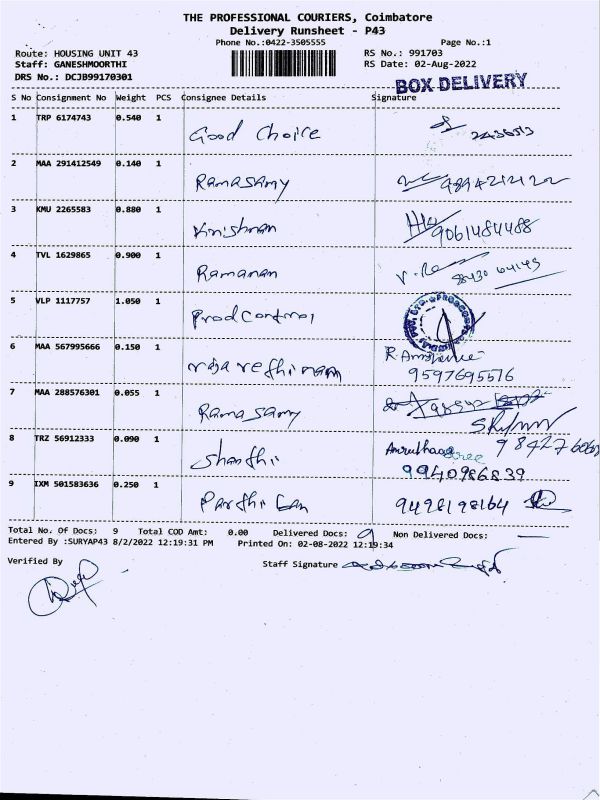 THE PROFESSIONAL COURIERS, Coimbatore
Delivery Runsheet - P43
Phone No.:0422-3505555 Page No.:1
Route: HOUSING UNIT 43 RS No.: 991703
Staff: GANESHMOORTHI RS Date: 02-Aug-2022
DRS No.: DCJB99170301
BOX DELIVERY
S No Consignment No Weight PCS Consignee Details Signature
1 TRP 6174743 0.540 1 Good Choice
2 MAA 291412549 0.140 1 Ramasamy
3 KMU 2265583 0.880 1 Krishnan 9061484488
4 TVL 1629865 0.900 1 Ramanan
5 VLP 1117757 1.050 1
6 MAA 567995666 0.150 1
9597695516
7 MAA 288576301 0.055 1 Ramasamy
8 TRZ 56912333 0.090 1 Shanthi
9940986839
9 IXM 501583636 0.250 1
Total No. Of Docs: 9 Total COD Amt: 0.00 Delivered Docs: 9 Non Delivered Docs: —
Entered By :SURYAP43 8/2/2022 12:19:31 PM Printed On: 02-08-2022 12:19:34
Verified By Staff Signature